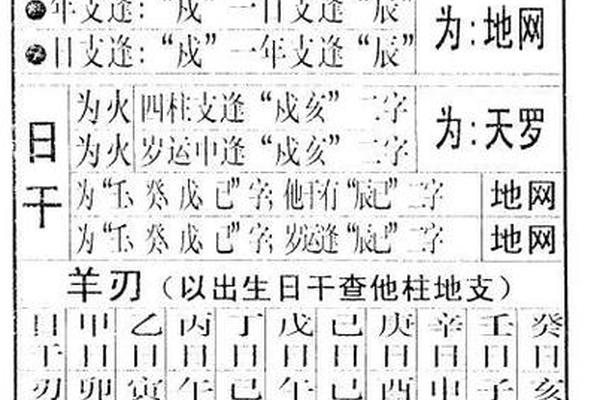 年支逢：“戌”一日支逢“辰”
日支逢：“戌”一年支逢“辰”
为：地网
日干
为火 四柱支逢“戌亥”二字
为火 岁运中逢“戌亥”二字
为：天罗
为“壬、癸、戊、己”字；他干有“辰巳”二字 地网
为“壬、癸、戊、己”字；岁运逢“辰巳”二字 地网
羊刃（以出生日干查他柱地支）
日 甲 乙 丙 丁 戊 己 庚 辛 壬 癸
干 日 日 日 日 日 日 日 日 日 日
刃 卯 寅 午 巳 午 巳 酉 申 子 亥